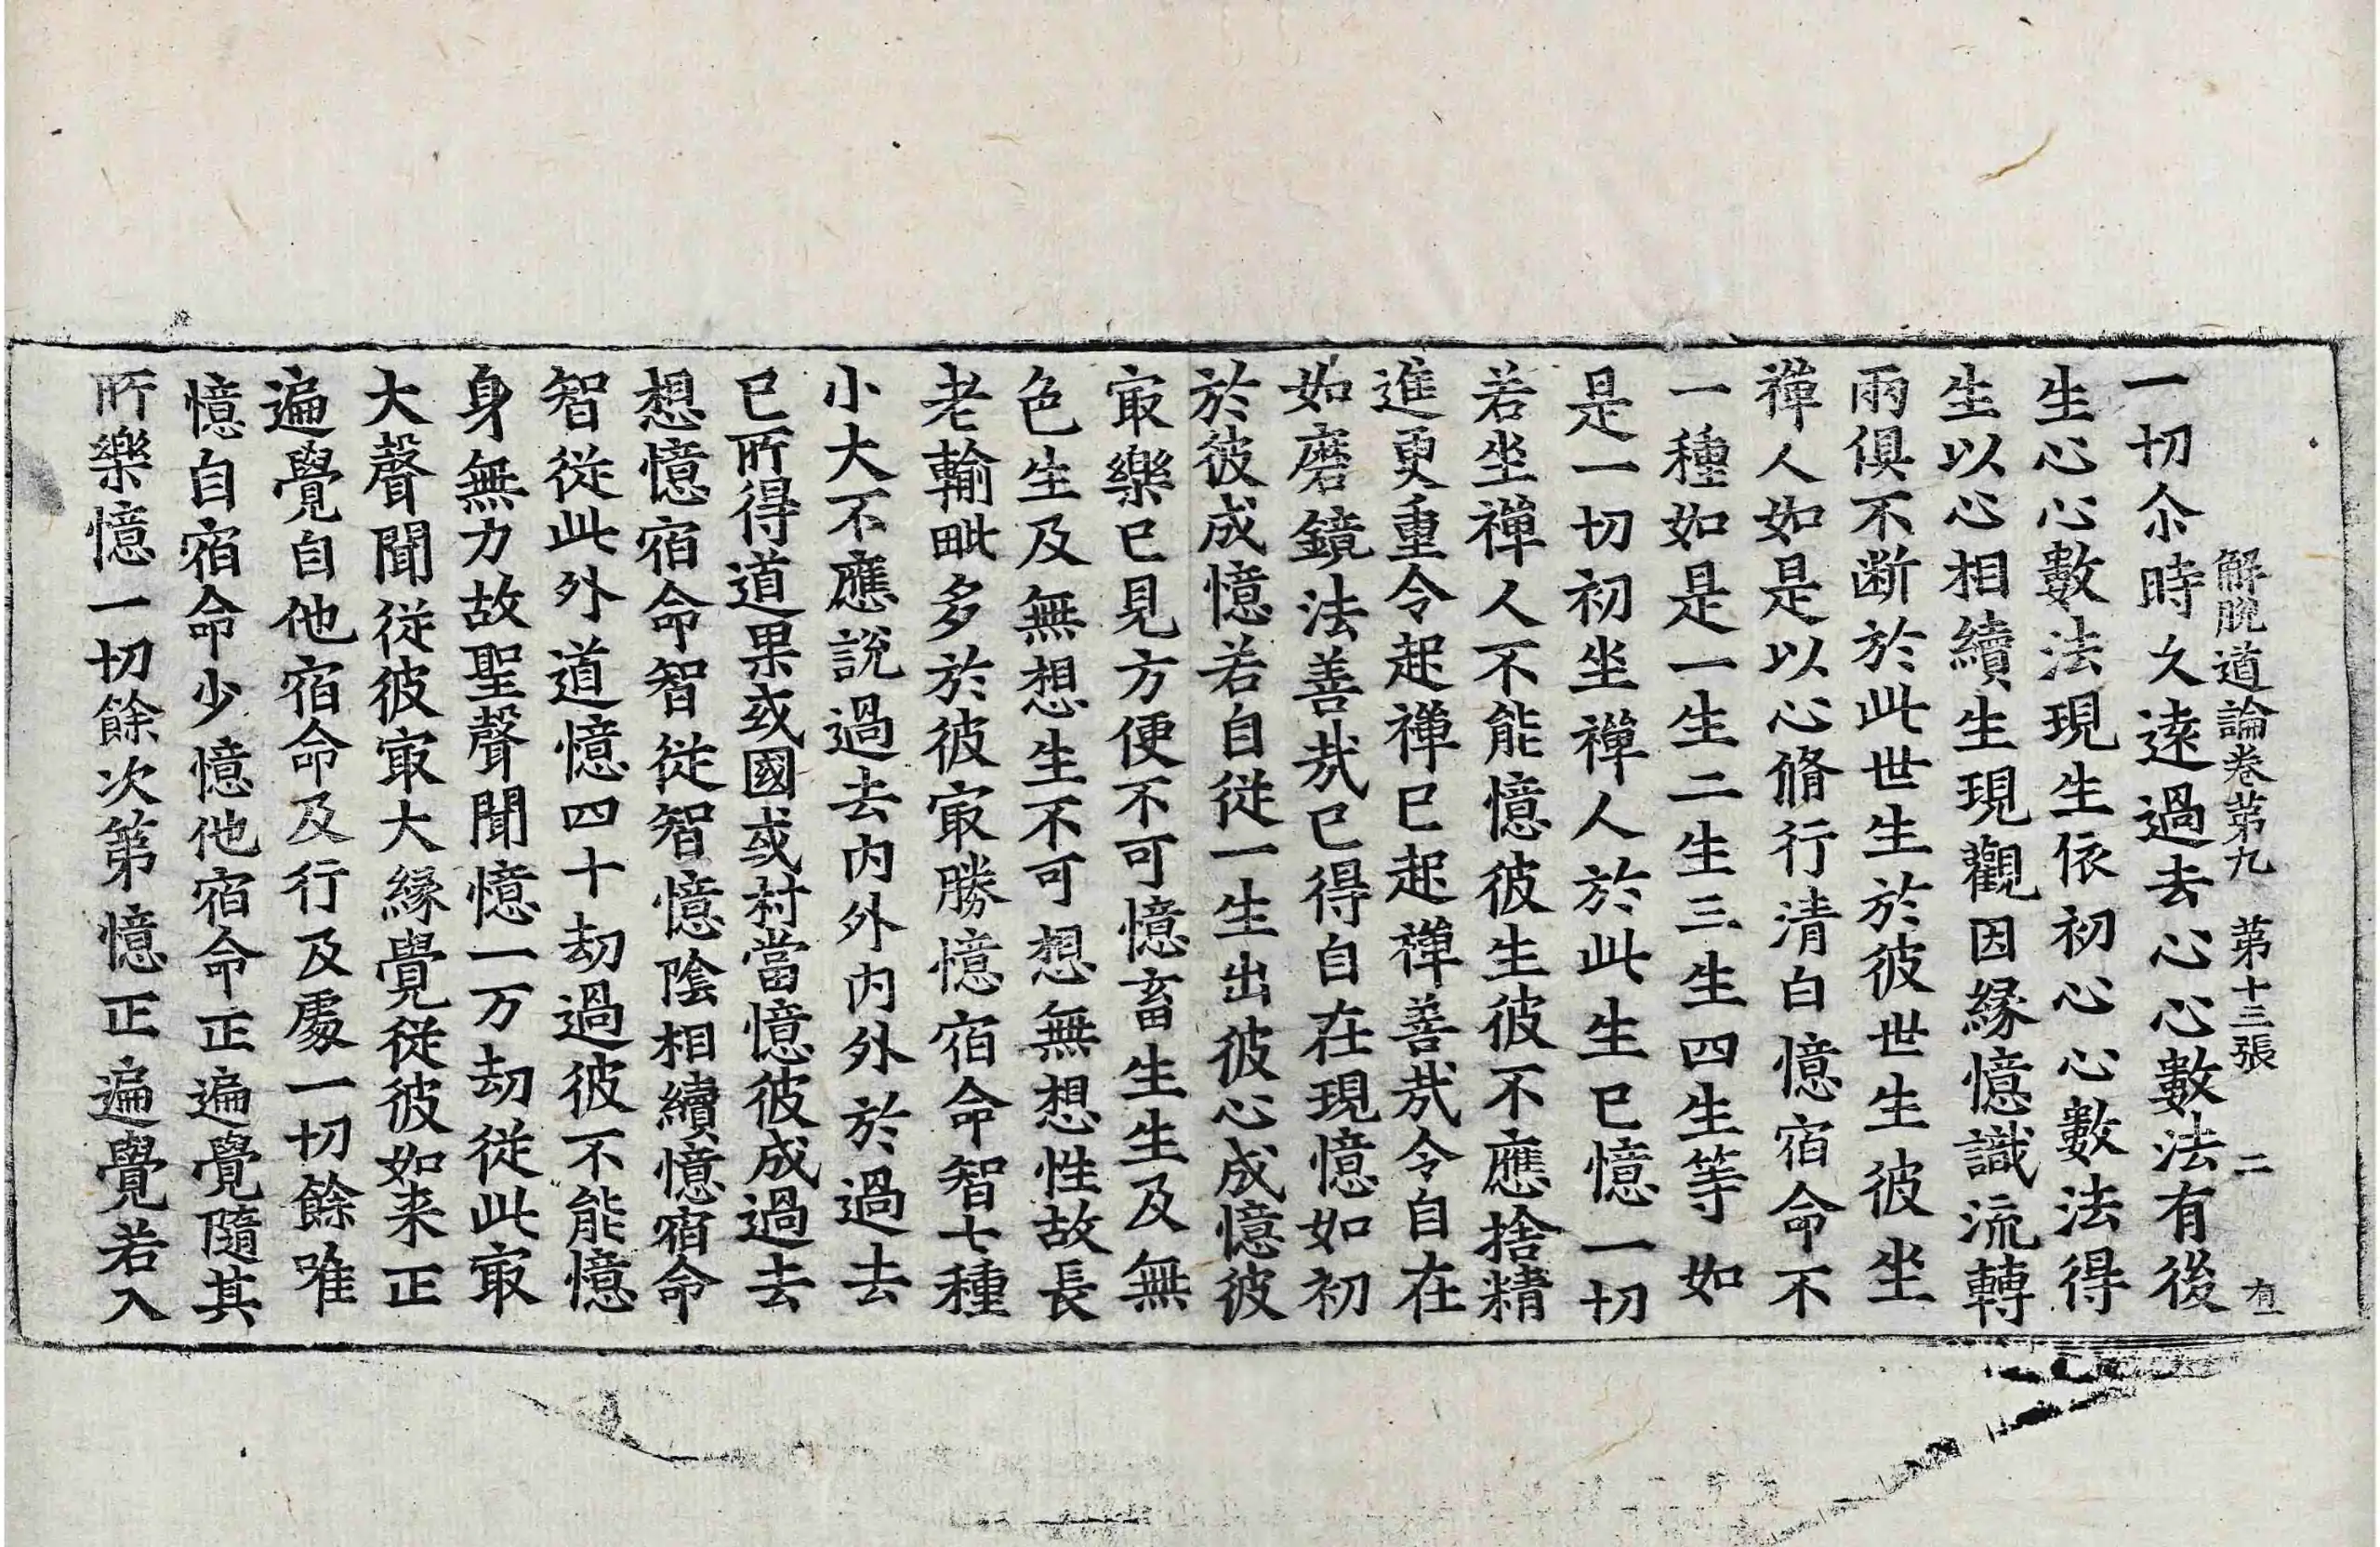 解脫道論卷第九 第十三張 二 有
一切尒時久遠過去心心數法有後
生心心數法現生依初心心數法得
生以心相續生現觀因緣憶識流轉
兩俱不断於此世生於彼世生彼坐
禪人如是以心脩行清白憶宿命不
一種如是一生二生三生四生等如
是一切初坐禪人於此生已憶一切
若坐禪人不能憶彼生彼不應捨精
進更重令起禪已起禪善㢤令自在
如磨鏡法善㢤已得自在現憶如初
於彼成憶若自從一生出彼心成憶彼
㝡樂已見方便不可憶畜生生及無
色生及無想生不可想無想性故長
老輸毗多於彼㝡勝憶宿命智七種
小大不應說過去內外內外於過去
已所得道果或國或村當憶彼成過去
想憶宿命智從智憶陰相續憶宿命
智從此外道憶四十劫過彼不能憶
身無力故聖聲聞憶一万劫從此㝡
大聲聞從彼㝡大緣覺從彼如来正
遍覺自他宿命及行及處一切餘唯
憶自宿命少憶他宿命正遍覺隨其
所樂憶一切餘次第憶正遍覺若入